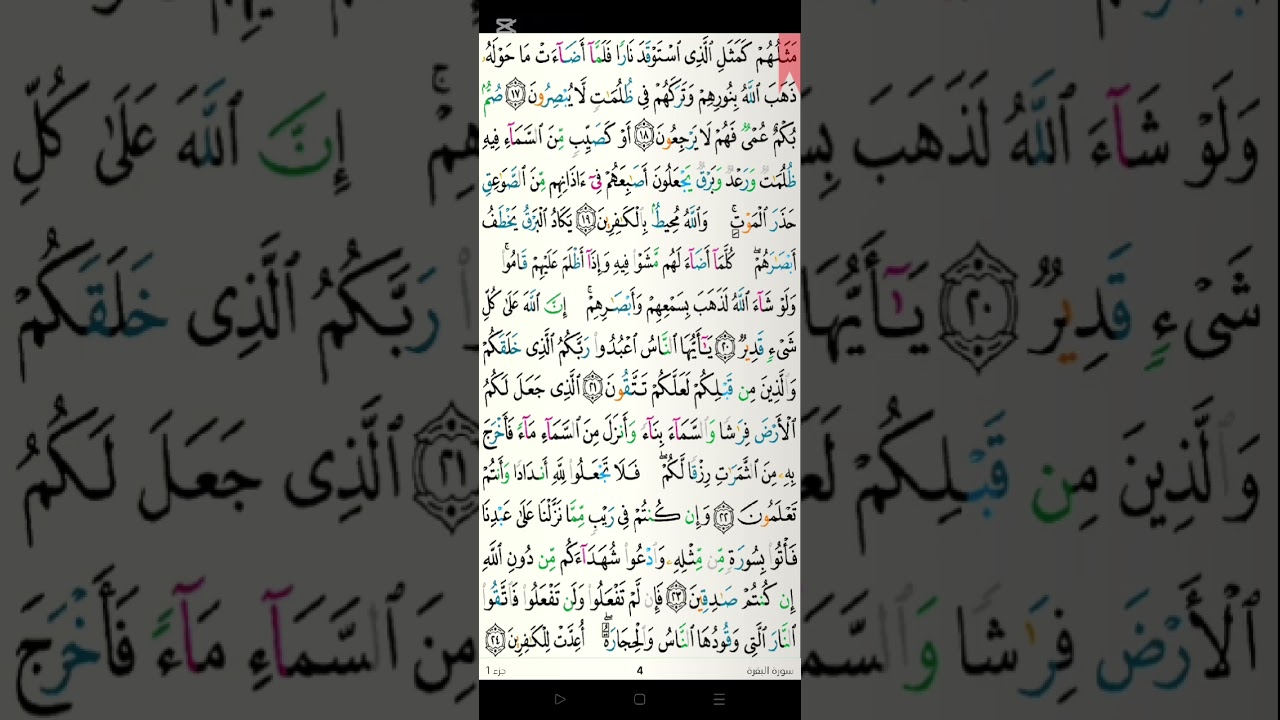 مَثَلُهُمْ كَمَثَلِ ٱلَّذِى ٱسْتَوْقَدَ نَارًا فَلَمَّآ أَضَآءَتْ مَا حَوْلَهُۥ
ذَهَبَ ٱللَّهُ بِنُورِهِمْ وَتَرَكَهُمْ فِى ظُلُمَٰتٍ لَّا يُبْصِرُونَ ١٧ صُمٌّۢ
بُكْمٌ عُمْىٌ فَهُمْ لَا يَرْجِعُونَ ١٨ أَوْ كَصَيِّبٍ مِّنَ ٱلسَّمَآءِ فِيهِ
ظُلُمَٰتٌ وَرَعْدٌ وَبَرْقٌ يَجْعَلُونَ أَصَٰبِعَهُمْ فِىٓ ءَاذَانِهِم مِّنَ ٱلصَّوَٰعِقِ
حَذَرَ ٱلْمَوْتِۚ وَٱللَّهُ مُحِيطٌۢ بِٱلْكَٰفِرِينَ ١٩ يَكَادُ ٱلْبَرْقُ يَخْطَفُ
أَبْصَٰرَهُمْۖ كُلَّمَآ أَضَآءَ لَهُم مَّشَوْا۟ فِيهِ وَإِذَآ أَظْلَمَ عَلَيْهِمْ قَامُوا۟ۚ
وَلَوْ شَآءَ ٱللَّهُ لَذَهَبَ بِسَمْعِهِمْ وَأَبْصَٰرِهِمْۚ إِنَّ ٱللَّهَ عَلَىٰ كُلِّ
شَىْءٍ قَدِيرٌ ٢٠ يَٰٓأَيُّهَا ٱلنَّاسُ ٱعْبُدُوا۟ رَبَّكُمُ ٱلَّذِى خَلَقَكُمْ
وَٱلَّذِينَ مِن قَبْلِكُمْ لَعَلَّكُمْ تَتَّقُونَ ٢١ ٱلَّذِى جَعَلَ لَكُمُ
ٱلْأَرْضَ فِرَٰشًا وَٱلسَّمَآءَ بِنَآءً وَأَنزَلَ مِنَ ٱلسَّمَآءِ مَآءً فَأَخْرَجَ
بِهِۦ مِنَ ٱلثَّمَرَٰتِ رِزْقًا لَّكُمْۖ فَلَا تَجْعَلُوا۟ لِلَّهِ أَندَادًا وَأَنتُمْ
تَعْلَمُونَ ٢٢ وَإِن كُنتُمْ فِى رَيْبٍ مِّمَّا نَزَّلْنَا عَلَىٰ عَبْدِنَا
فَأْتُوا۟ بِسُورَةٍ مِّن مِّثْلِهِۦ وَٱدْعُوا۟ شُهَدَآءَكُم مِّن دُونِ ٱللَّهِ
إِن كُنتُمْ صَٰدِقِينَ ٢٣ فَإِن لَّمْ تَفْعَلُوا۟ وَلَن تَفْعَلُوا۟ فَٱتَّقُوا۟
ٱلنَّارَ ٱلَّتِى وَقُودُهَا ٱلنَّاسُ وَٱلْحِجَارَةُۖ أُعِدَّتْ لِلْكَٰفِرِينَ ٢٤
سورة البقرة 4 جزء 1